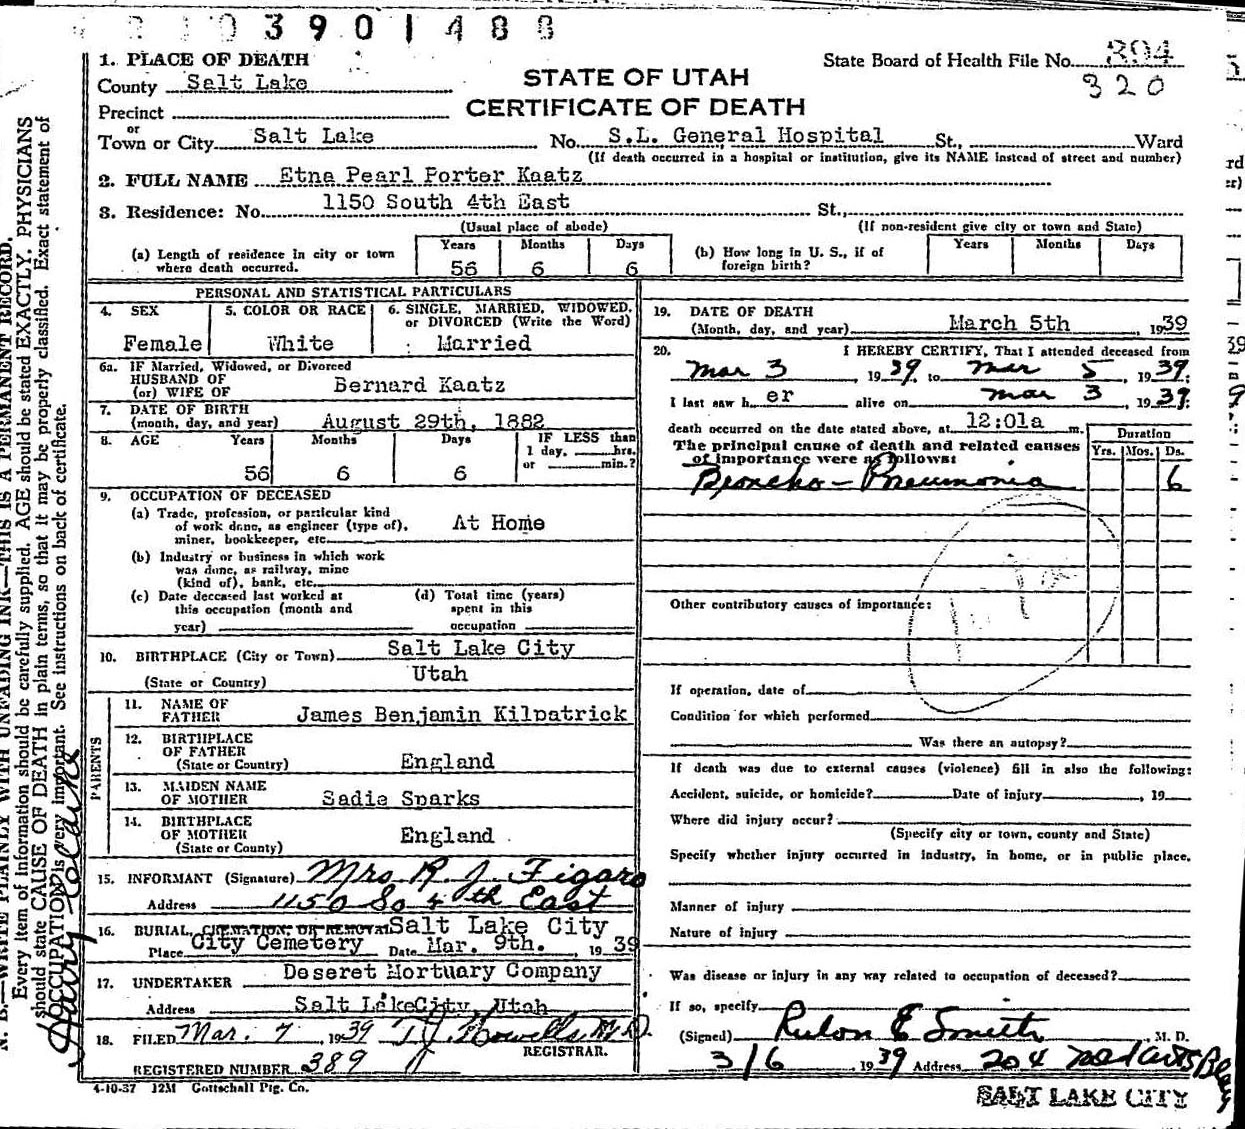 3 9 0 1 4 8 8
1. PLACE OF DEATH
State Board of Health File No. 394
County Salt Lake
STATE OF UTAH
320
Precinct
CERTIFICATE OF DEATH
or
Town or City Salt Lake No. S.L. General Hospital St., Ward
(If death occurred in a hospital or institution, give its NAME instead of street and number)
2. FULL NAME Etna Pearl Porter Kaatz
3. Residence: No. 1150 South 4th East St.,
(Usual place of abode) (If non-resident give city or town and State)
(a) Length of residence in city or town where death occurred. Years 56 Months 6 Days 6
(b) How long in U. S., if of foreign birth? Years Months Days
PERSONAL AND STATISTICAL PARTICULARS
4. SEX 5. COLOR OR RACE 6. SINGLE, MARRIED, WIDOWED,
or DIVORCED (Write the Word)
Female White Married
6a. IF Married, Widowed, or Divorced
HUSBAND OF
(or) WIFE OF Bernard Kaatz
7. DATE OF BIRTH
(month, day, and year) August 29th, 1882
8. AGE Years Months Days IF LESS than
1 day, hrs.
or min.?
56 6 6
9. OCCUPATION OF DECEASED
(a) Trade, profession, or particular kind
of work done, as engineer (type of),
miner, bookkeeper, etc. At Home
(b) Industry or business in which work
was done, as railway, mine
(kind of), bank, etc.
(c) Date deceased last worked at
this occupation (month and
year)
(d) Total time (years)
spent in this
occupation
10. BIRTHPLACE (City or Town) Salt Lake City
(State or Country) Utah
PARENTS
11. NAME OF
FATHER James Benjamin Kilpatrick
12. BIRTHPLACE
OF FATHER
(State or Country) England
13. MAIDEN NAME
OF MOTHER Sadie Sparks
14. BIRTHPLACE
OF MOTHER
(State or County) England
15. INFORMANT (Signature) Mrs R. J. Figaro
Address 1150 So 4th East
16. BURIAL, CREMATION, OR REMOVAL Salt Lake City
Place City Cemetery Date Mar. 9th. 1939
17. UNDERTAKER Deseret Mortuary Company
Address Salt Lake City, Utah
18. FILED Mar. 7, 1939 T.J. Howells M.D.
REGISTRAR.
REGISTERED NUMBER 389
4-10-37 12M Gottschall Ptg. Co.
19. DATE OF DEATH
(Month, day, and year) March 5th, 1939
20. I HEREBY CERTIFY, That I attended deceased from
Mar 3, 1939 to Mar 5, 1939;
I last saw her alive on Mar 3, 1939;
death occurred on the date stated above, at 12:01a m.
The principal cause of death and related causes
of importance were as follows:
Duration
Yrs. Mos. Ds.
Broncho-Pneumonia 6
Other contributory causes of importance:
If operation, date of
Condition for which performed
Was there an autopsy?
If death was due to external causes (violence) fill in also the following:
Accident, suicide, or homicide? Date of injury, 19
Where did injury occur?
(Specify city or town, county and State)
Specify whether injury occurred in industry, in home, or in public place.
Manner of injury
Nature of injury
Was disease or injury in any way related to occupation of deceased?
If so, specify
(Signed) Rulon E Smith M. D.
3/6, 1939 Address 204 Med Arts Bldg
SALT LAKE CITY
N. B.—WRITE PLAINLY WITH UNFADING INK—THIS IS A PERMANENT RECORD.
Every item of information should be carefully supplied. AGE should be stated EXACTLY. PHYSICIANS
should state CAUSE OF DEATH in plain terms, so that it may be properly classified. Exact statement of
OCCUPATION is very important. See instructions on back of certificate.